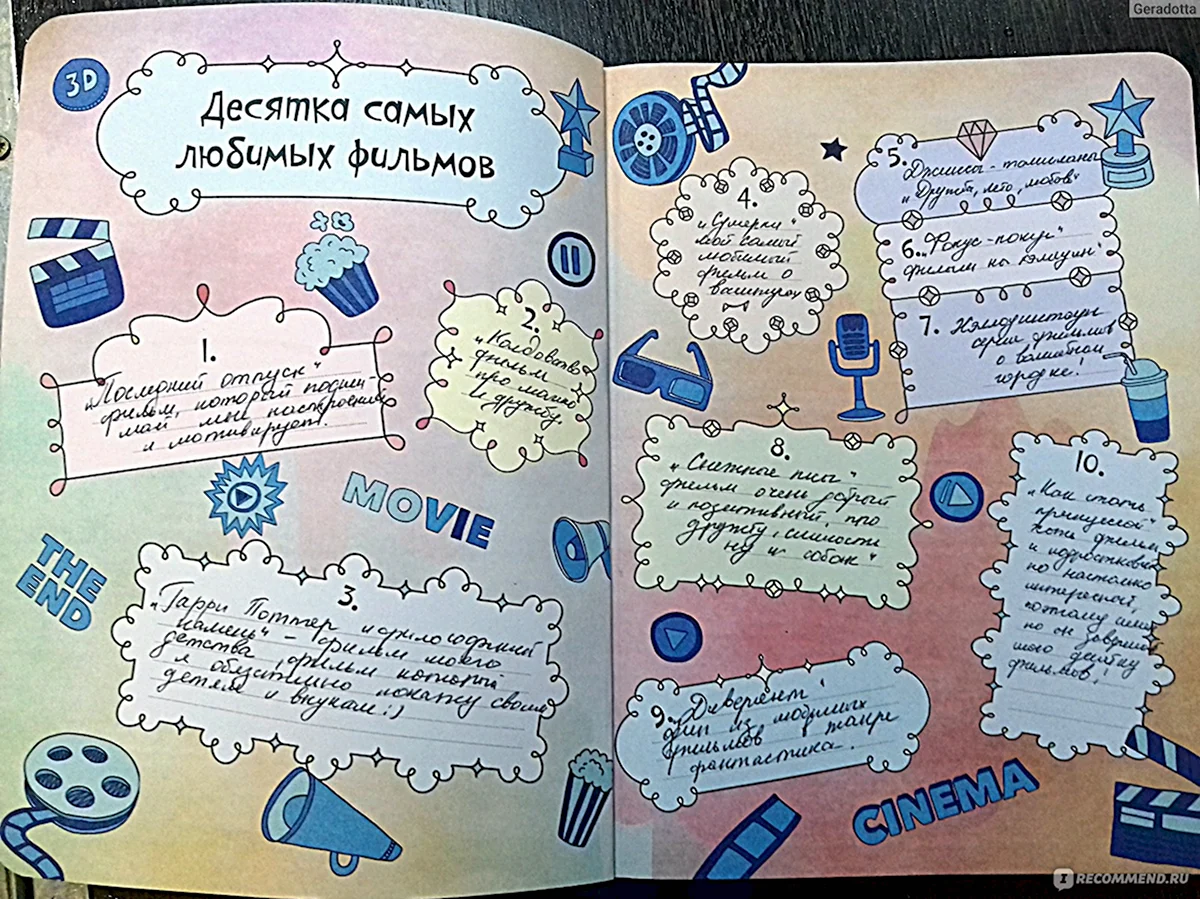 Geradotta
3D
Десятка самых
любимых фильмов
1.
„Последний отпуск"
фильм, который подни-
мает мне настроение
и мотивирует.
2.
„Колдовство"
фильм
про магию
и дружбу.
MOVIE
THE
END
3.
„Гарри Поттер и философский
камень" – фильм моего
детства, фильм который
я обязательно покажу своим
детям и внукам:)
4.
„Сумерки"
мой самый
любимый
фильм о
вампирах
5. Джинсы-талисманы
„Дружба, лето, любовь"
6. „Фокус-покус"
фильм на
7. Хэллоуинтаун
серия фильмов
о волшебном
городке.
8.
„Снежные псы"
фильм очень добрый
и позитивный, про
дружбу,
и собак"
9. Дивергент
один из любимых
фильмов жанре
фантастика.
10.
„Как стать
принцессой"
хоть фильм
и подростковый
но настолько
интересный,
поэтому именно
но он завершил
мою десятку
фильмов!
CINEMA
IRECOMMEND.RU